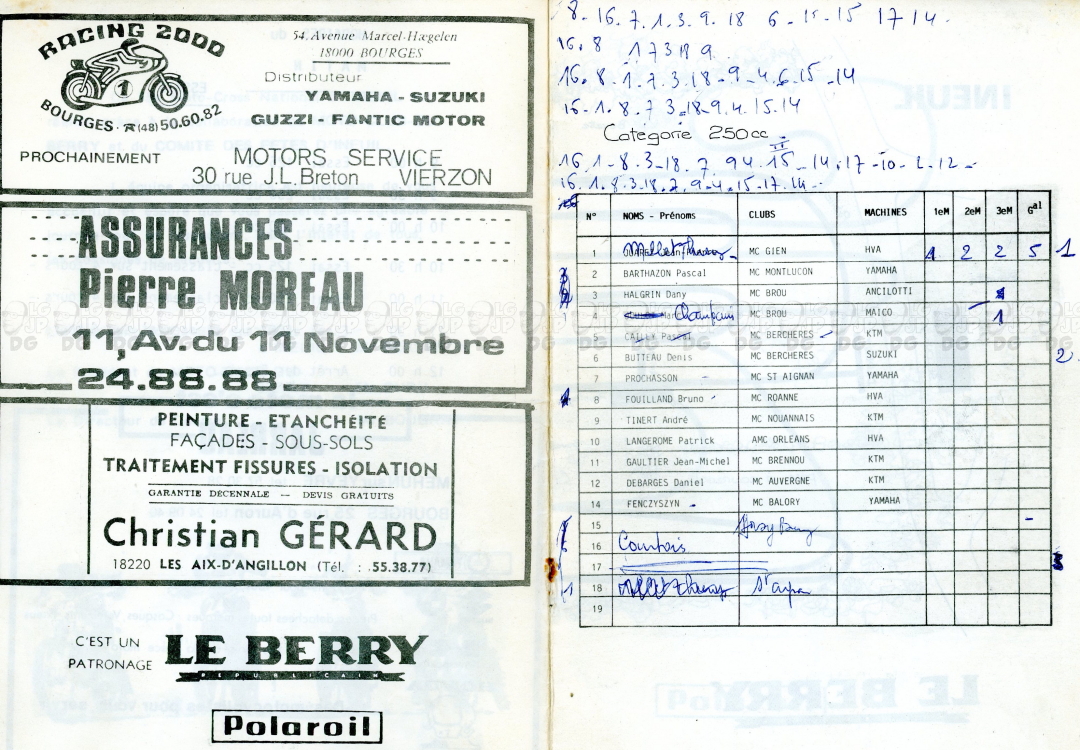 RACING 2000
1
BOURGES - ☎ (48) 50.60.82
54. Avenue Marcel-Hægelen
18000 BOURGES
Distributeur
YAMAHA - SUZUKI
GUZZI - FANTIC MOTOR
PROCHAINEMENT
MOTORS SERVICE
30 rue J.L.Breton VIERZON
ASSURANCES
Pierre MOREAU
11, Av. du 11 Novembre
24.88.88
PEINTURE - ETANCHÉITÉ
FAÇADES - SOUS-SOLS
TRAITEMENT FISSURES - ISOLATION
GARANTIE DÉCENNALE — DEVIS GRATUITS
Christian GÉRARD
18220 LES AIX-D'ANGILLON (Tél. : 55.38.77)
C'EST UN
PATRONAGE
LE BERRY
REPUBLICAIN
Polaroil
8. 16. 7. 1. 3. 9. 18 6 - 15 17 14
16. 8 1 7 3 18 9
16. 8. 1. 7. 3. 18 - 9 - 4. 6. 15 - 14
16. 1. 8. 7 3. 18. 9. 4. 15. 14
Catégorie 250cc
16. 1 - 8. 3 - 18. 7. 9 4. 15 - 14 - 17 - 10 - 2 - 12 -
16. 1. 8. 3. 18. 7. 9 - 4 - 15 - 17. 14 -
N° NOMS - Prénoms CLUBS MACHINES 1eM 2eM 3eM Gal
1 MC GIEN HVA 1 2 2 5 1
2 BARTHAZON Pascal MC MONTLUCON YAMAHA
3 HALGRIN Dany MC BROU ANCILOTTI
4 MC BROU MAICO 1
5 CAILLY Pascal MC BERCHERES KTM
6 BUTTEAU Denis MC BERCHERES SUZUKI 2
7 PROCHASSON MC ST AIGNAN YAMAHA
8 FOUILLAND Bruno MC ROANNE HVA
9 TINERT André MC NOUANNAIS KTM
10 LANGEROME Patrick AMC ORLEANS HVA
11 GAULTIER Jean-Michel MC BRENNOU KTM
12 DEBARGES Daniel MC AUVERGNE KTM
14 FENCZYSZYN MC BALORY YAMAHA
15
16 Courtois
17
18
19